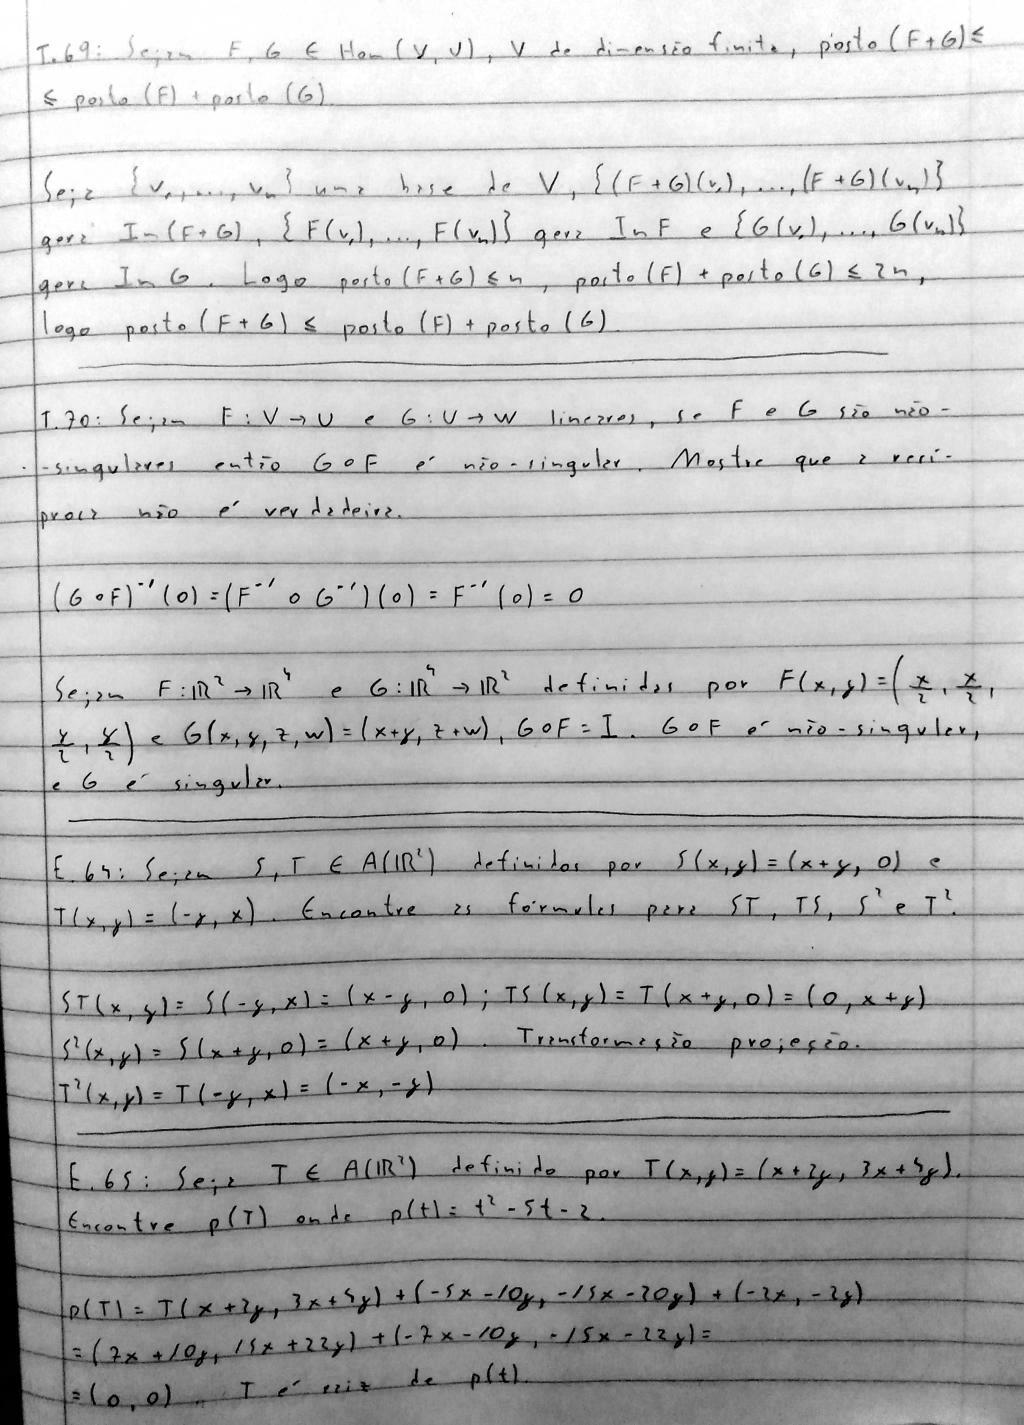 T.69: Sejam F, G ∈ Hom(V, U), V de dimensão finita, posto (F+G) ≤
≤ posto (F) + posto (G)
Seja {v₁, ..., vₙ} uma base de V, {(F+G)(v₁), ..., (F+G)(vₙ)}
gera Im(F+G), {F(v₁), ..., F(vₙ)} gera Im F e {G(v₁), ..., G(vₙ)}
gera Im G. Logo posto (F+G) ≤ n, posto (F) + posto (G) ≤ 2n,
logo posto (F+G) ≤ posto (F) + posto (G)
T.70: Sejam F: V → U e G: U → W lineares, se F e G são não-
-singulares então G∘F é não-singular. Mostre que a recí-
proca não é verdadeira.
(G∘F)⁻¹(0) = (F⁻¹ ∘ G⁻¹)(0) = F⁻¹(0) = 0
Sejam F: ℝ² → ℝ⁴ e G: ℝ⁴ → ℝ² definidas por F(x,y) = (x/2, x/2,
y/2, y/2) e G(x,y,z,w) = (x+y, z+w), G∘F = I. G∘F é não-singular,
e G é singular.
E.64: Sejam S, T ∈ A(ℝ²) definidos por S(x,y) = (x+y, 0) e
T(x,y) = (-y, x). Encontre as fórmulas para ST, TS, S² e T².
ST(x,y) = S(-y, x) = (x-y, 0); TS(x,y) = T(x+y, 0) = (0, x+y)
S²(x,y) = S(x+y, 0) = (x+y, 0). Transformação projeção.
T²(x,y) = T(-y, x) = (-x, -y)
E.65: Seja T ∈ A(ℝ²) definido por T(x,y) = (x+2y, 3x+4y).
Encontre p(T) onde p(t) = t² - 5t - 2.
p(T) = T(x+2y, 3x+4y) + (-5x-10y, -15x-20y) + (-2x, -2y)
= (7x+10y, 15x+22y) + (-7x-10y, -15x-22y) =
= (0,0). T é raiz de p(t).